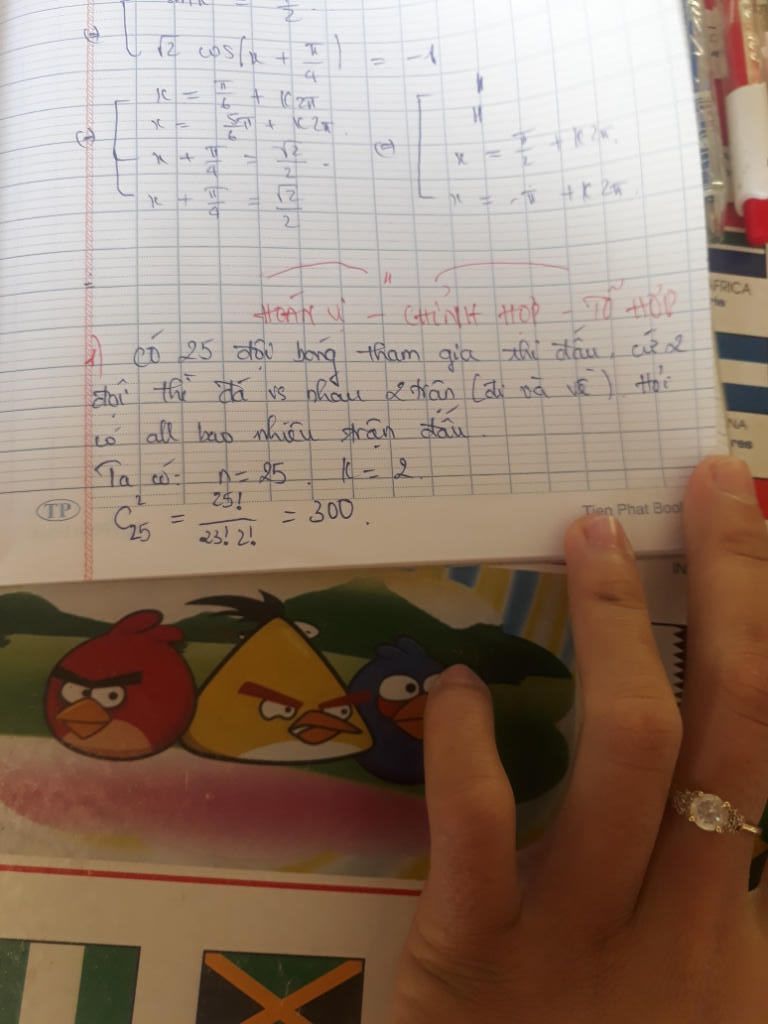 1/2
⇔ √2 cos(x + π/4) = -1
⇔ x = π/6 + k2π
x = 5π/6 + k2π
x + π/4 = √2/2
x + π/4 = √2/2
⇔ "
x = π/2 + k2π.
x = -π + k2π.
HOÁN VỊ - CHỈNH HỢP - TỔ HỢP
1) Có 25 đội bóng tham gia thi đấu, cứ 2
đội thì đá vs nhau 2 trận (đi và về). Hỏi
có all bao nhiêu trận đấu.
Ta có: n = 25. k = 2.
C²₂₅ = 25!/23!2! = 300.
TP
Tien Phat Book
FRICA
NA
res
IN